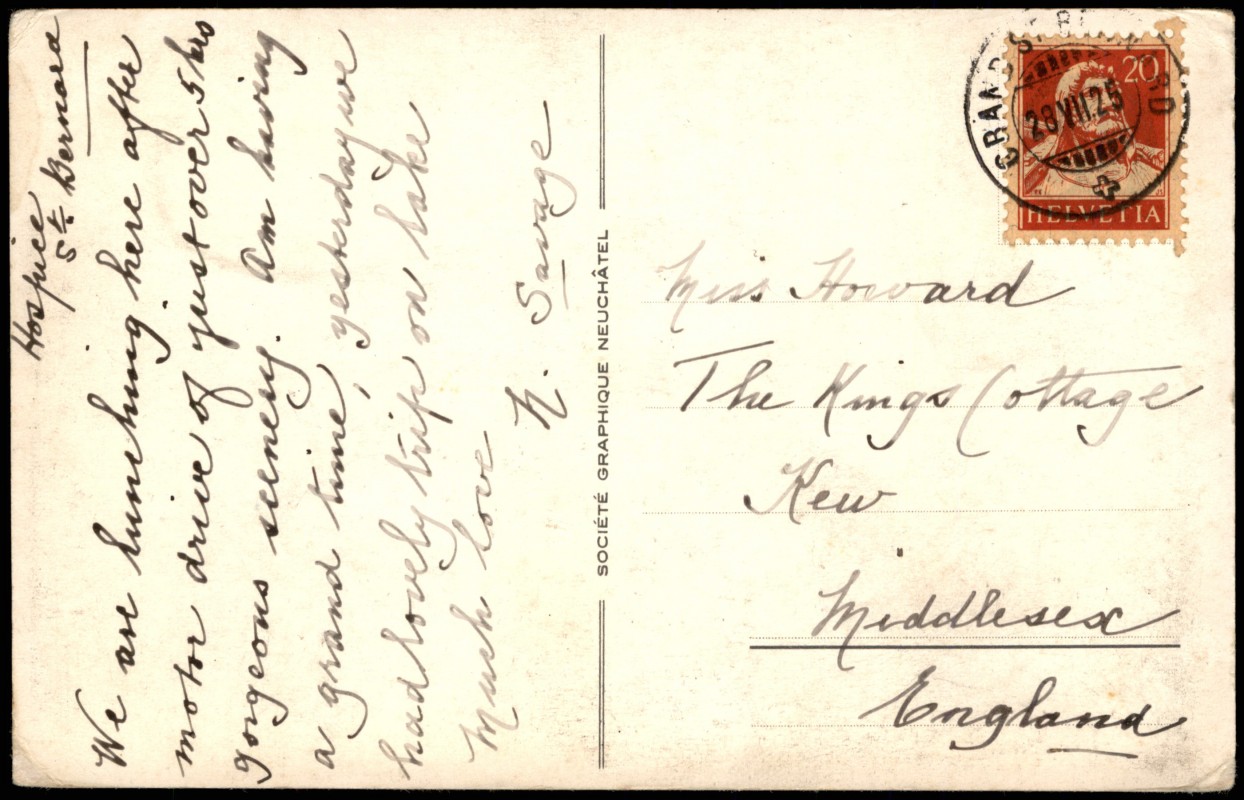 Hospice
St Bernard
We are lunching here after
motor drive of just over 5 hrs
gorgeous scenery. Am having
a grand time, yesterday we
had lovely trip on lake
Much love
N. Savage
SOCIÉTÉ GRAPHIQUE NEUCHÂTEL
GRAND ST BERNARD
28.VII.25
20
HELVETIA
Miss Howard
The Kings Cottage
Kew
Middlesex
England